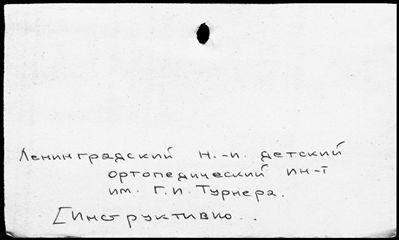 Ленинградский н.-и. детский
ортопедический ин-т
им. Г.И. Турнера.
[Инструктивно..